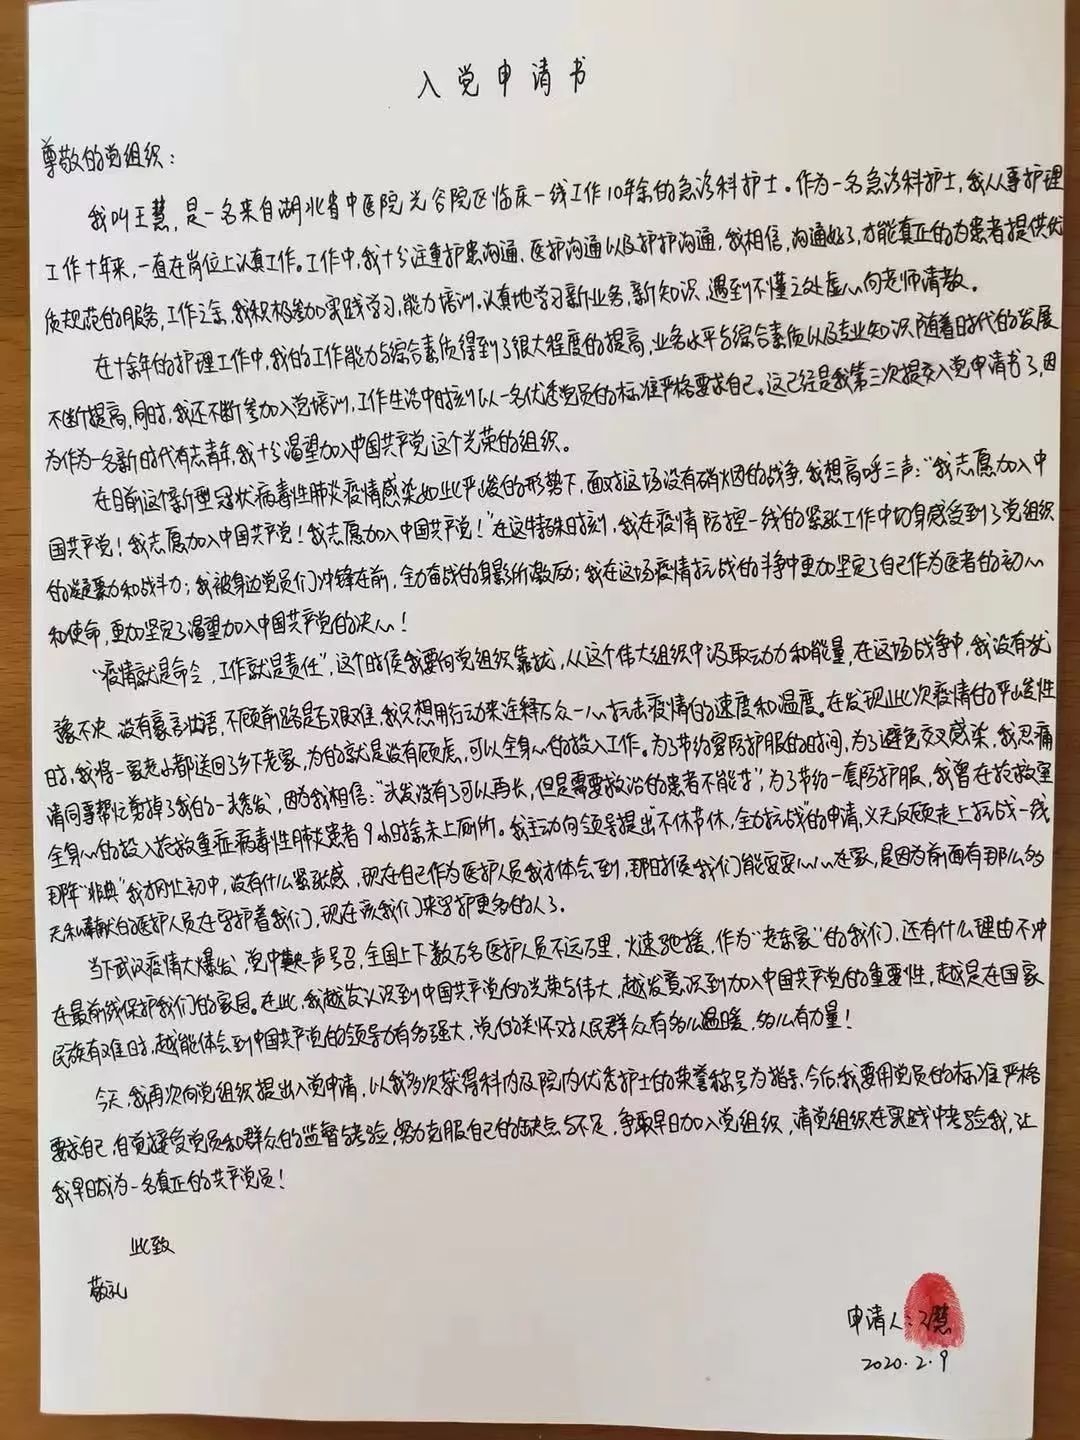 入党申请书
尊敬的党组织：
我叫王慧，是一名来自湖北省中医院光谷院区临床一线工作10年余的急诊科护士。作为一名急诊科护士，我从事护理
工作十年来，一直在岗位上认真工作。工作中，我十分注重护患沟通、医护沟通以及护护沟通，我相信，沟通好了，才能真正的为患者提供优
质规范的服务，工作之余，我积极参加实践学习，能力培训，认真地学习新业务，新知识，遇到不懂之处虚心向老师请教。
在十余年的护理工作中，我的工作能力与综合素质得到了很大程度的提高，业务水平与综合素质以及专业知识随着时代的发展
不断提高，同时，我还不断参加入党培训，工作生活中时刻以一名优秀党员的标准严格要求自己。这已经是我第三次提交入党申请书了，因
为作为一名新时代有志青年，我十分渴望加入中国共产党这个光荣的组织。
在目前这个新型冠状病毒性肺炎疫情感染如此严峻的形势下，面对这场没有硝烟的战争，我想高呼三声：“我志愿加入中
国共产党！我志愿加入中国共产党！我志愿加入中国共产党！”在这特殊时刻，我在疫情防控一线的紧张工作中切身感受到了党组织
的凝聚力和战斗力；我被身边党员们冲锋在前，全力奋战的身影所激励；我在这场疫情抗战的斗争中更加坚定了自己作为医者的初心
和使命，更加坚定了渴望加入中国共产党的决心！
“疫情就是命令，工作就是责任”，这个时候我要向党组织靠拢，从这个伟大组织中汲取动力和能量，在这场战争中，我没有犹
豫不决，没有豪言壮语，不顾前路是否艰难，我只想用行动来诠释万众一心抗击疫情的速度和温度。在发现此次疫情的严峻性
时，我将一家老小都送回了乡下老家，为的就是没有顾虑，可以全身心的投入工作。为了节约穿防护服的时间，为了避免交叉感染，我忍痛
请同事帮忙剪掉了我的一头秀发，因为我相信：“头发没有了可以再长，但是需要救治的患者不能等”，为了节约一套防护服，我曾在抢救室
全身心的投入抢救重症病毒性肺炎患者9小时余未上厕所。我主动向领导提出“不休节休，全力抗战”的申请，义无反顾走上抗战一线
那年“非典”我才刚上初中，没有什么紧张感，现在自己作为医护人员我才体会到，那时候我们能安安心心在家，是因为前面有那么多
无私奉献的医护人员在守护着我们，现在该我们来守护更多的人了。
当下武汉疫情大爆发，党中央一声号召，全国上下数万名医护人员不远万里，火速驰援，作为“老东家”的我们，还有什么理由不冲
在最前线保护我们的家园。在此，我越发认识到中国共产党的光荣与伟大，越发意识到加入中国共产党的重要性，越是在国家
民族有难时，越能体会到中国共产党的领导力有多强大，党的关怀对人民群众有多么温暖，多么有力量！
今天，我再次向党组织提出入党申请，以我多次获得科内及院内优秀护士的荣誉称号为指导，今后，我要用党员的标准严格
要求自己，自觉接受党员和群众的监督与考验，努力克服自己的缺点与不足，争取早日加入党组织，请党组织在实践中考验我，让
我早日成为一名真正的共产党员！
此致
敬礼
申请人：王慧
2020.2.9